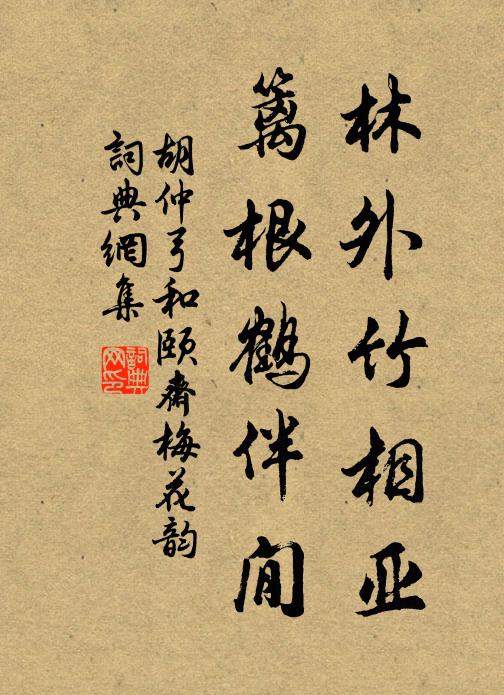 林外竹相亚
篱根鶴伴閒
胡仲弓和頤齋梅花韵
詞典網集
詞典网印